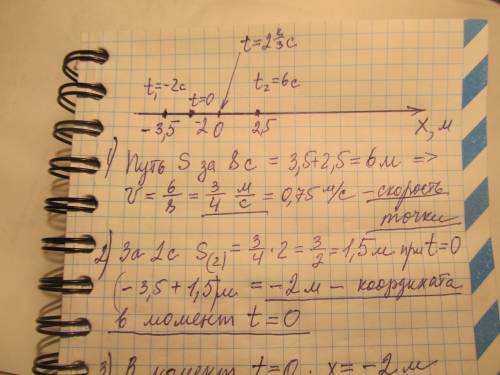 t=2⅔c
t₁=-2c t=0 t₂=6c
-3,5 -2 0 2,5 X, м
1) Путь S за 8c = 3,5+2,5 = 6м =>
V = 6/8 = 3/4 м/с = 0,75 м/с – скорость
точки
2) За 2с S(2) = 3/4 · 2 = 3/2 = 1,5м при t=0
(-3,5 + 1,5)м = -2м – координата
в момент t=0
3) В момент t=0. x = -2м